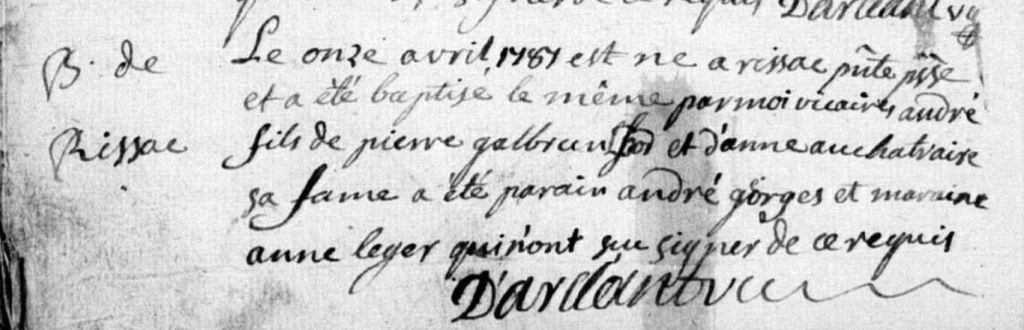 signer de ce requis Darclant vic
B. de
Rissac
Le onze avril 1787 est ne a rissac pnte psse
et a été baptisé le même par moi vicaire andré
fils de pierre galbrun et d'anne auchatraire
sa fame a été parain andré gorges et maraine
anne leger qui n'ont su signer de ce requis
D'arclant vic